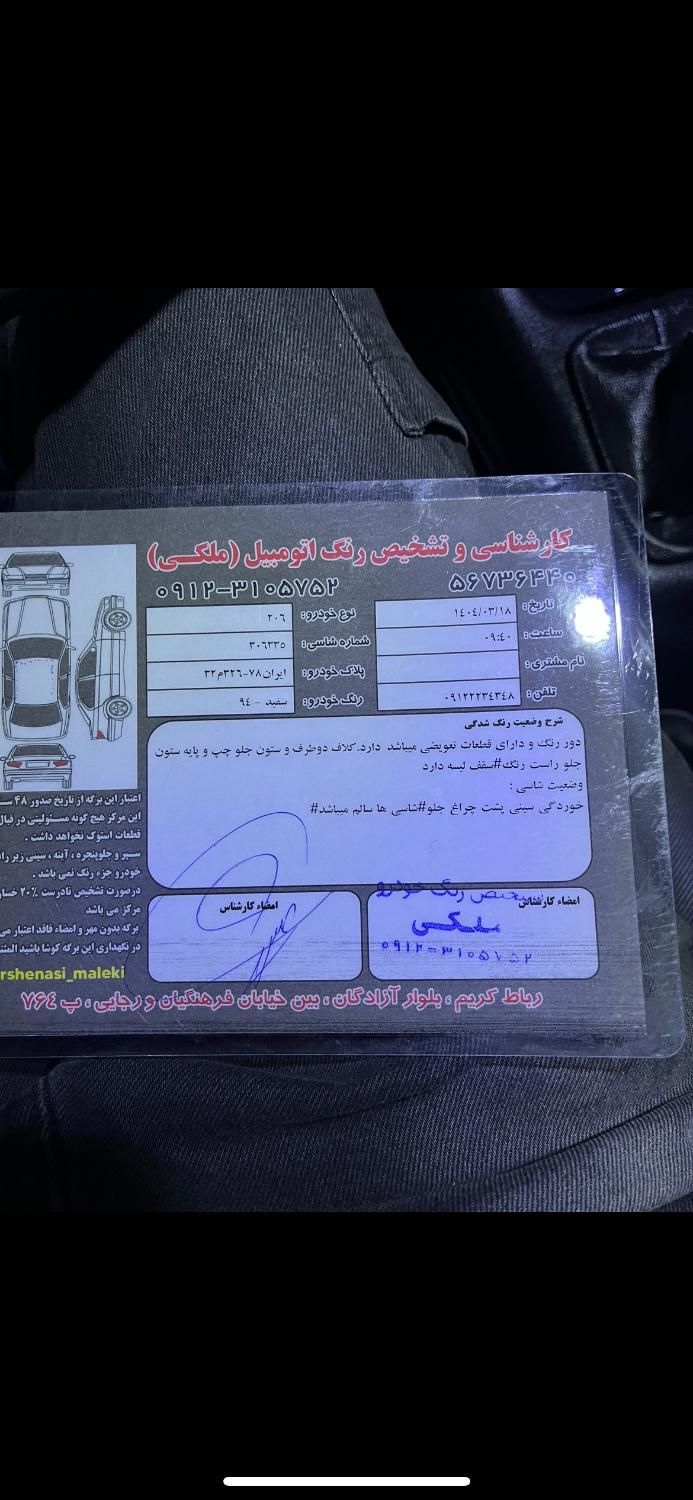 کارشناسی و تشخیص رنگ اتومبیل (ملکـــی)
۵۶۷۳۶۴۴۰
۰۹۱۲-۳۱۰۵۷۵۲
تاریخ: ۱۴۰٤/۰۳/۱۸
نوع خودرو: ۲۰٦
ساعت: ۰۹:٤۰
شماره شاسی: ۳۰٦۳۳۵
نام مشتری:
پلاک خودرو: ایران۷۸-۳۲٦م۳۲
تلفن: ۰۹۱۲۲۲۳٤۳٤۸
رنگ خودرو: سفید - ۹٤
شرح وضعیت رنگ شدگی
دور رنگ و دارای قطعات تعویضی میباشد دارد.کلاف دوطرف و ستون جلو چپ و پایه ستون
جلو راست رنگ#سقف لیسه دارد
وضعیت شاسی :
خوردگی سینی پشت چراغ جلو#شاسی ها سالم میباشد#
اعتبار این برگه از تاریخ صدور ۴۸
این مرکز هیچ گونه مسئولیتی در قبال
قطعات استوک نخواهد داشت .
سـپر و جلوپنجره ، آینه ، سینی زیر
خودرو جزء رنگ نمی باشد .
درصورت تشخیص نادرست ۲۰٪
مرکز می باشد
برگه بدون مهر و امضاء فاقد اعتبار
در نگهداری این برگه کوشا باشید
rshenasi_maleki
امضاء کارشناس
امضاء کارشناس
تشخیص رنگ خودرو
ملکـی
۰۹۱۲-۳۱۰۵۷۵۲
رباط کریم ، بلوار آزادگان ، بین خیابان فرهنگیان و رجایی ، پ ۷۶۴